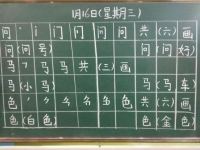 1月16日(星期三)
问 丶 门 问 问 问 共 (六) 画
问 (问号) 问 (问好)
马 马 马 共 (三) 画
马 (小马) 马 (马车)
色 色 色 共 (六) 画
色 (白色) 色 (金色)